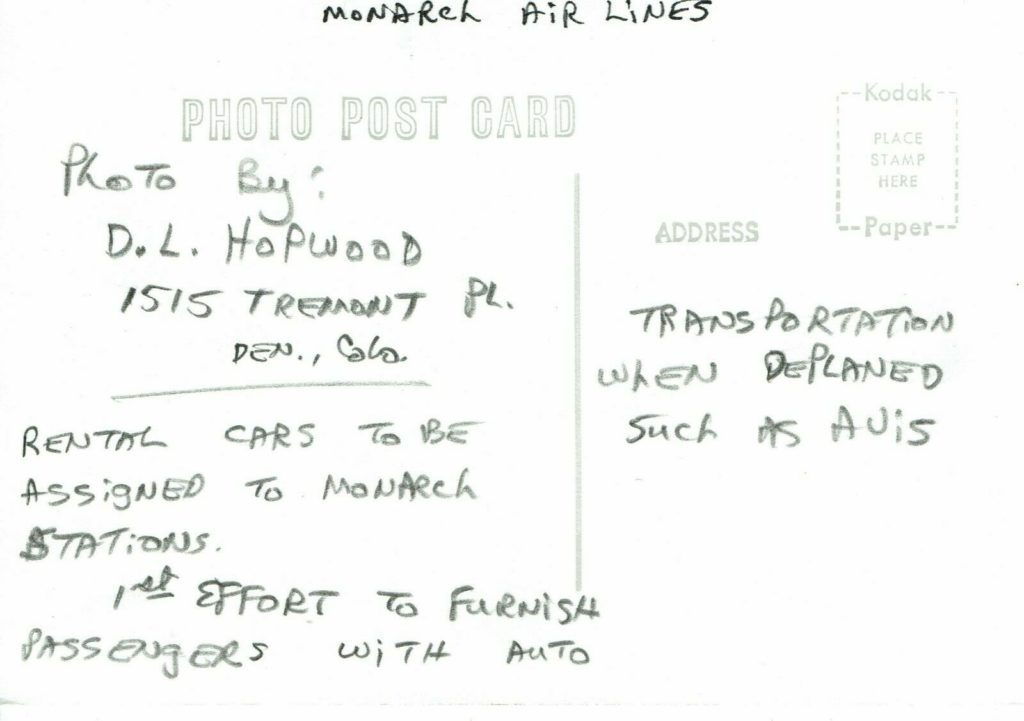 MONARCH AIR LINES
PHOTO POST CARD
Kodak
PLACE
STAMP
HERE
Paper
ADDRESS
PHOTO By:
D.L. HOPWOOD
1515 TREMONT PL.
DEN., Colo.
RENTAL CARS TO BE
ASSIGNED TO MONARCH
STATIONS.
1st EFFORT TO FURNISH
PASSENGERS WITH AUTO
TRANSPORTATION
WHEN DEPLANED
SUCH AS AVIS